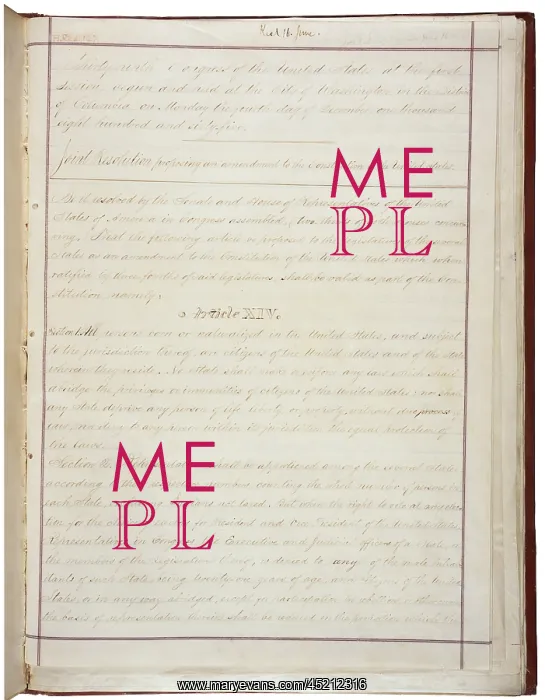 Rec'd 16 June.
Congress of the United States, at the first
Session, begun and held at the City of Washington in the District
of Columbia on Monday the fourth day of December one thousand
eight hundred and sixty-five
Joint Resolution proposing an amendment to the Constitution of the United States.
Be it resolved by the Senate and House of Representatives of the United
States of America in Congress assembled, two thirds of both Houses concur-
ring, That the following article be proposed to the legislatures of the several
States as an amendment to the Constitution of the United States, which when
ratified by three fourths of said legislatures, shall be valid as part of the Con-
stitution, namely:
Article XIV.
Section 1. All persons born or naturalized in the United States, and subject
to the jurisdiction thereof, are citizens of the United States and of the State
wherein they reside. No State shall make or enforce any law which shall
abridge the privileges or immunities of citizens of the United States; nor shall
any State deprive any person of life, liberty, or property, without due process of
law, nor deny to any person within its jurisdiction the equal protection of
the laws.
Section shall be apportioned among the several States
according to their respective numbers, counting the whole number of persons in
each State, not taxed. But when the right to vote at any elec-
tion for the choice of electors for President and Vice President of the United States,
Representatives in Congress, the Executive and Judicial officers of a State, or
the members of the legislature thereof, is denied to any of the male inhabi-
tants of such State, being twenty-one years of age, and citizens of the United
States, or in any way abridged, except for participation in rebellion or other crime,
the basis of representation therein shall be reduced in the proportion which the
ME
PL
ME
PL
www.maryevans.com/45212316